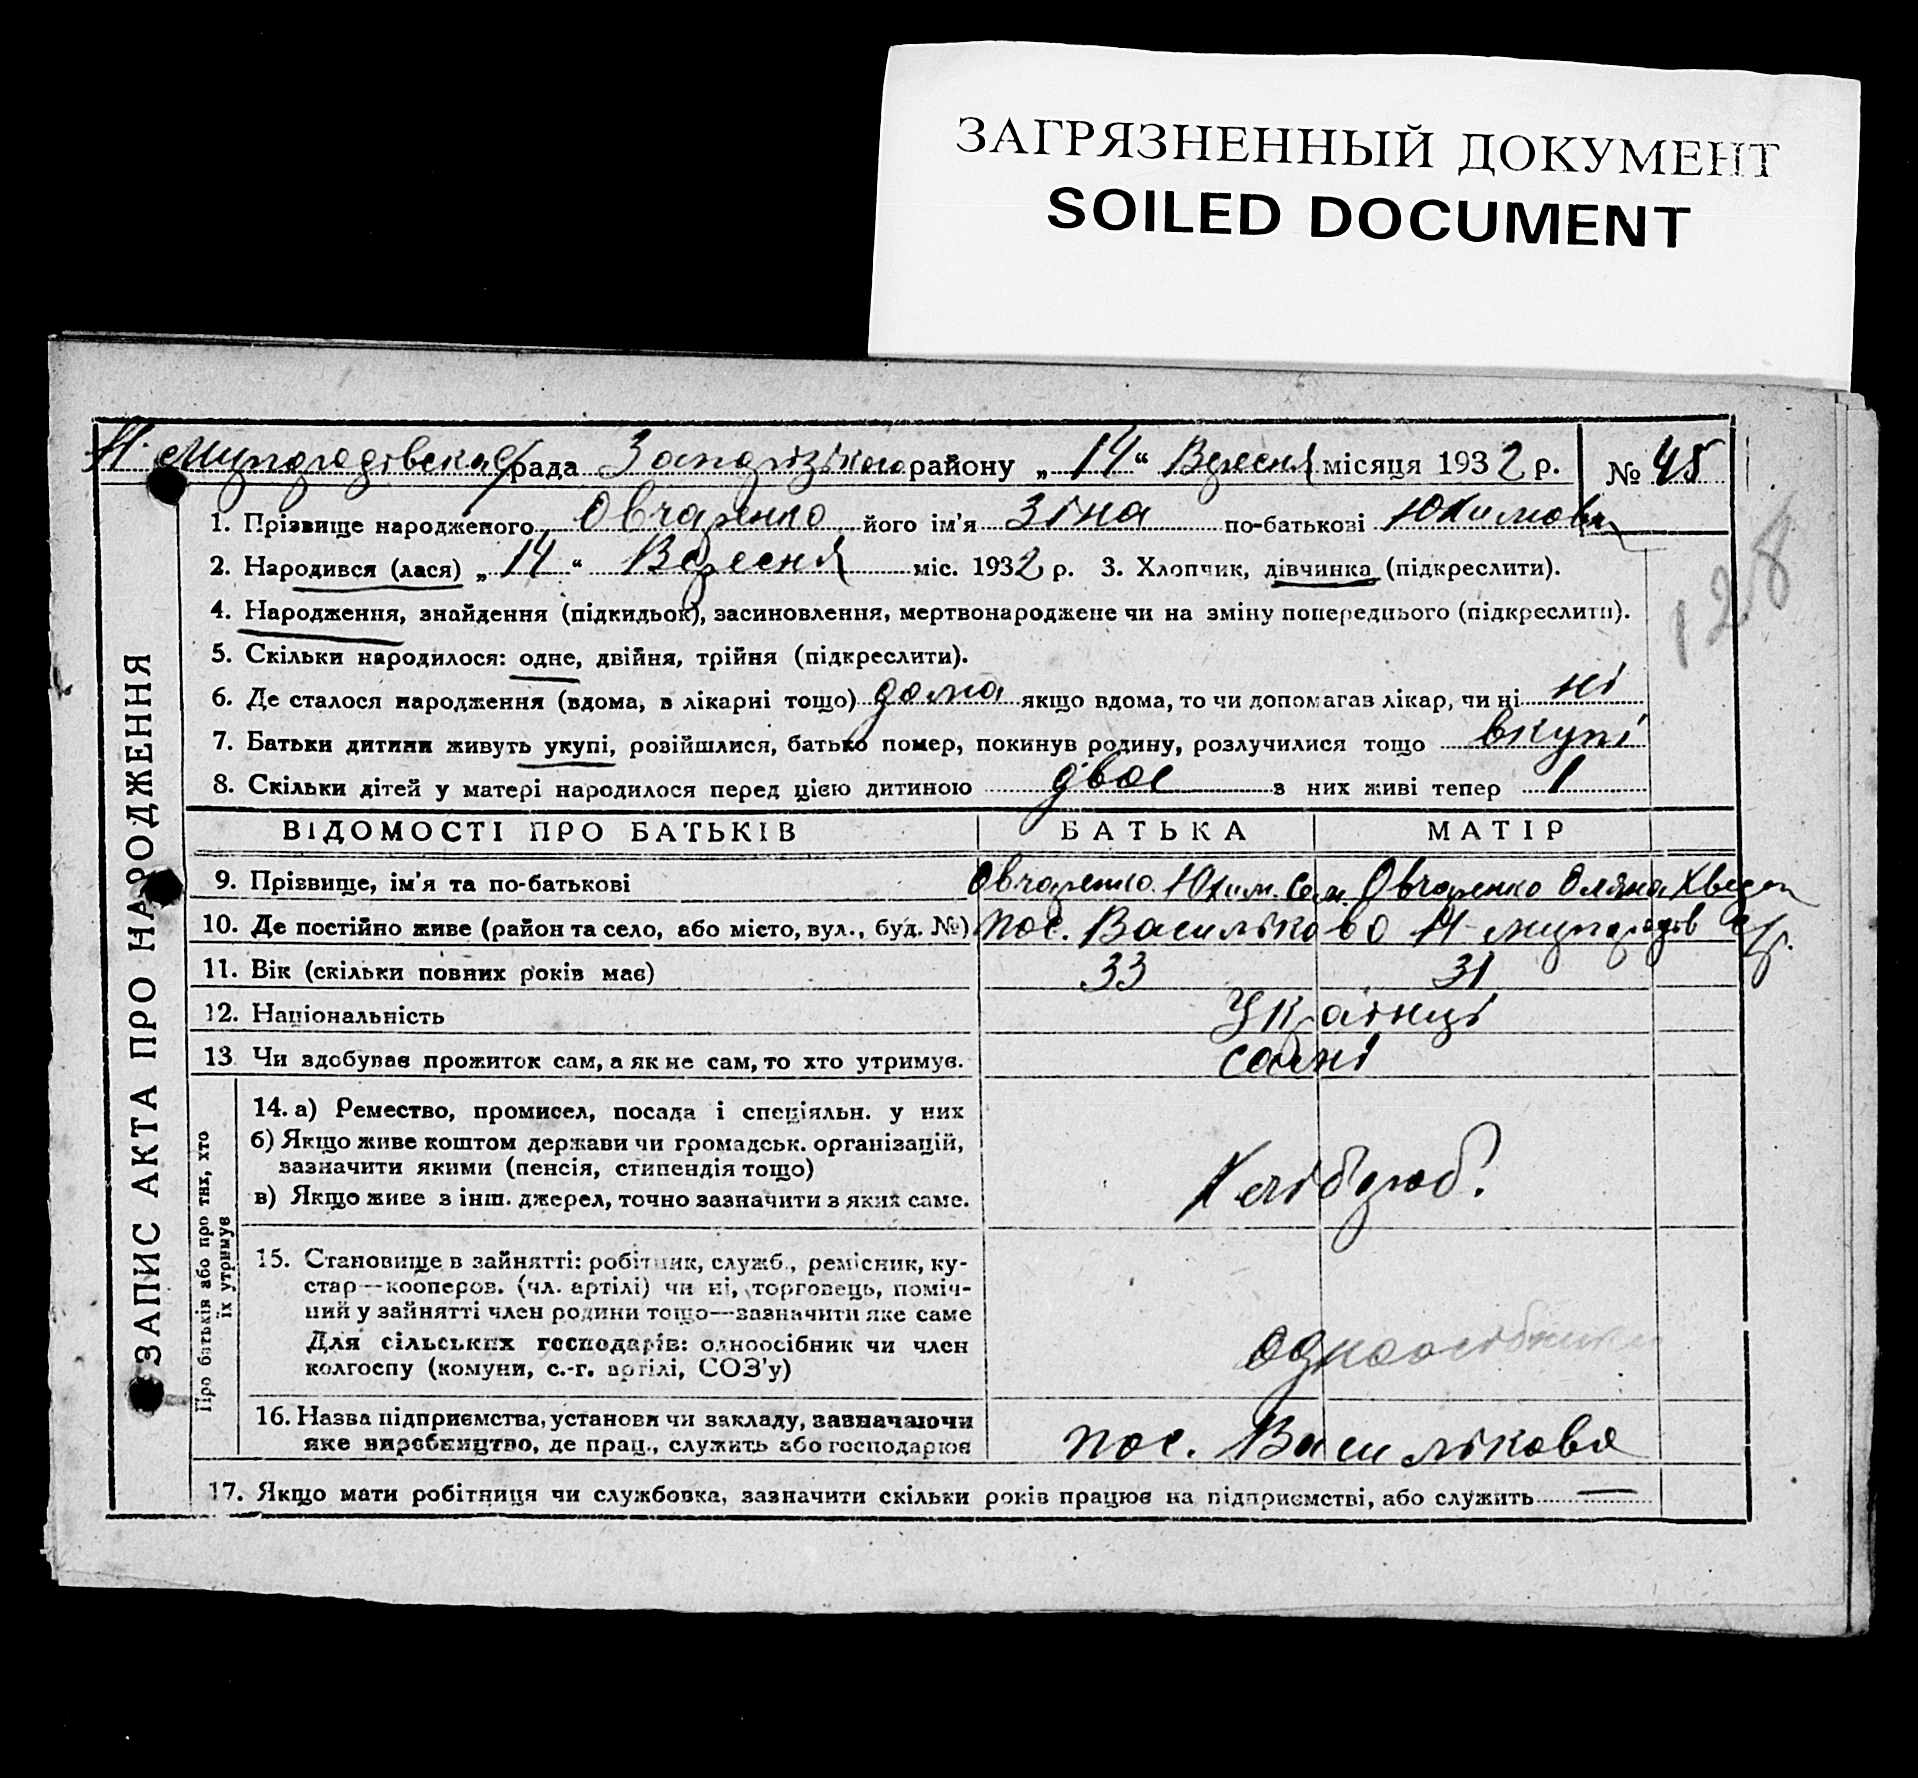 ЗАГРЯЗНЕННЫЙ ДОКУМЕНТ
SOILED DOCUMENT
рада району „14“ Вересня місяця 1932 р. № 45
1. Прізвище народженого Овчаренко його ім'я Зіна по-батькові Юхимовн
2. Народився (лася) „14“ Вересня міс. 1932 р. 3. Хлопчик, дівчинка (підкреслити).
4. Народження, знайдення (підкидьок), засиновлення, мертвонароджене чи на зміну попереднього (підкреслити).
5. Скільки народилося: одне, двійня, трійня (підкреслити).
6. Де сталося народження (вдома, в лікарні тощо) дома якщо вдома, то чи допомагав лікар, чи ні ні
7. Батьки дитини живуть укупі, розійшлися, батько помер, покинув родину, розлучилися тощо вкупі
8. Скільки дітей у матері народилося перед цією дитиною двоє з них живі тепер 1
128
ЗАПИС АКТА ПРО НАРОДЖЕННЯ
ВІДОМОСТІ ПРО БАТЬКІВ БАТЬКА МАТІР
9. Прізвище, ім'я та по-батькові Овчаренко Юхим. Сем. Овчаренко Оляна Хведор
10. Де постійно живе (район та село, або місто, вул., буд. №) пос. Васильково
11. Вік (скільки повних років має) 33 31
12. Національність Українці
13. Чи здобуває прожиток сам, а як не сам, то хто утримує. самі
Про батьків або про тих, хто
їх утримує
14. а) Ремество, промисел, посада і спеціяльн. у них
б) Якщо живе коштом держави чи громадськ. організацій,
зазначити якими (пенсія, стипендія тощо)
в) Якщо живе з інш. джерел, точно зазначити з яких саме.
Хлібороб.
15. Становище в зайнятті: робітник, служб., ремісник, ку-
стар—кооперов. (чл. артілі) чи ні, торговець, поміч-
ний у зайнятті член родини тощо—зазначити яке саме
Для сільських господарів: одноосібник чи член
колгоспу (комуни, с.-г. артілі, СОЗ'у)
одноосібники
16. Назва підприємства, установи чи закладу, зазначаючи
яке виробництво, де прац., служить або господарює
пос. Васильковя
17. Якщо мати робітниця чи службовка, зазначити скільки років працює на підприємстві, або служить —